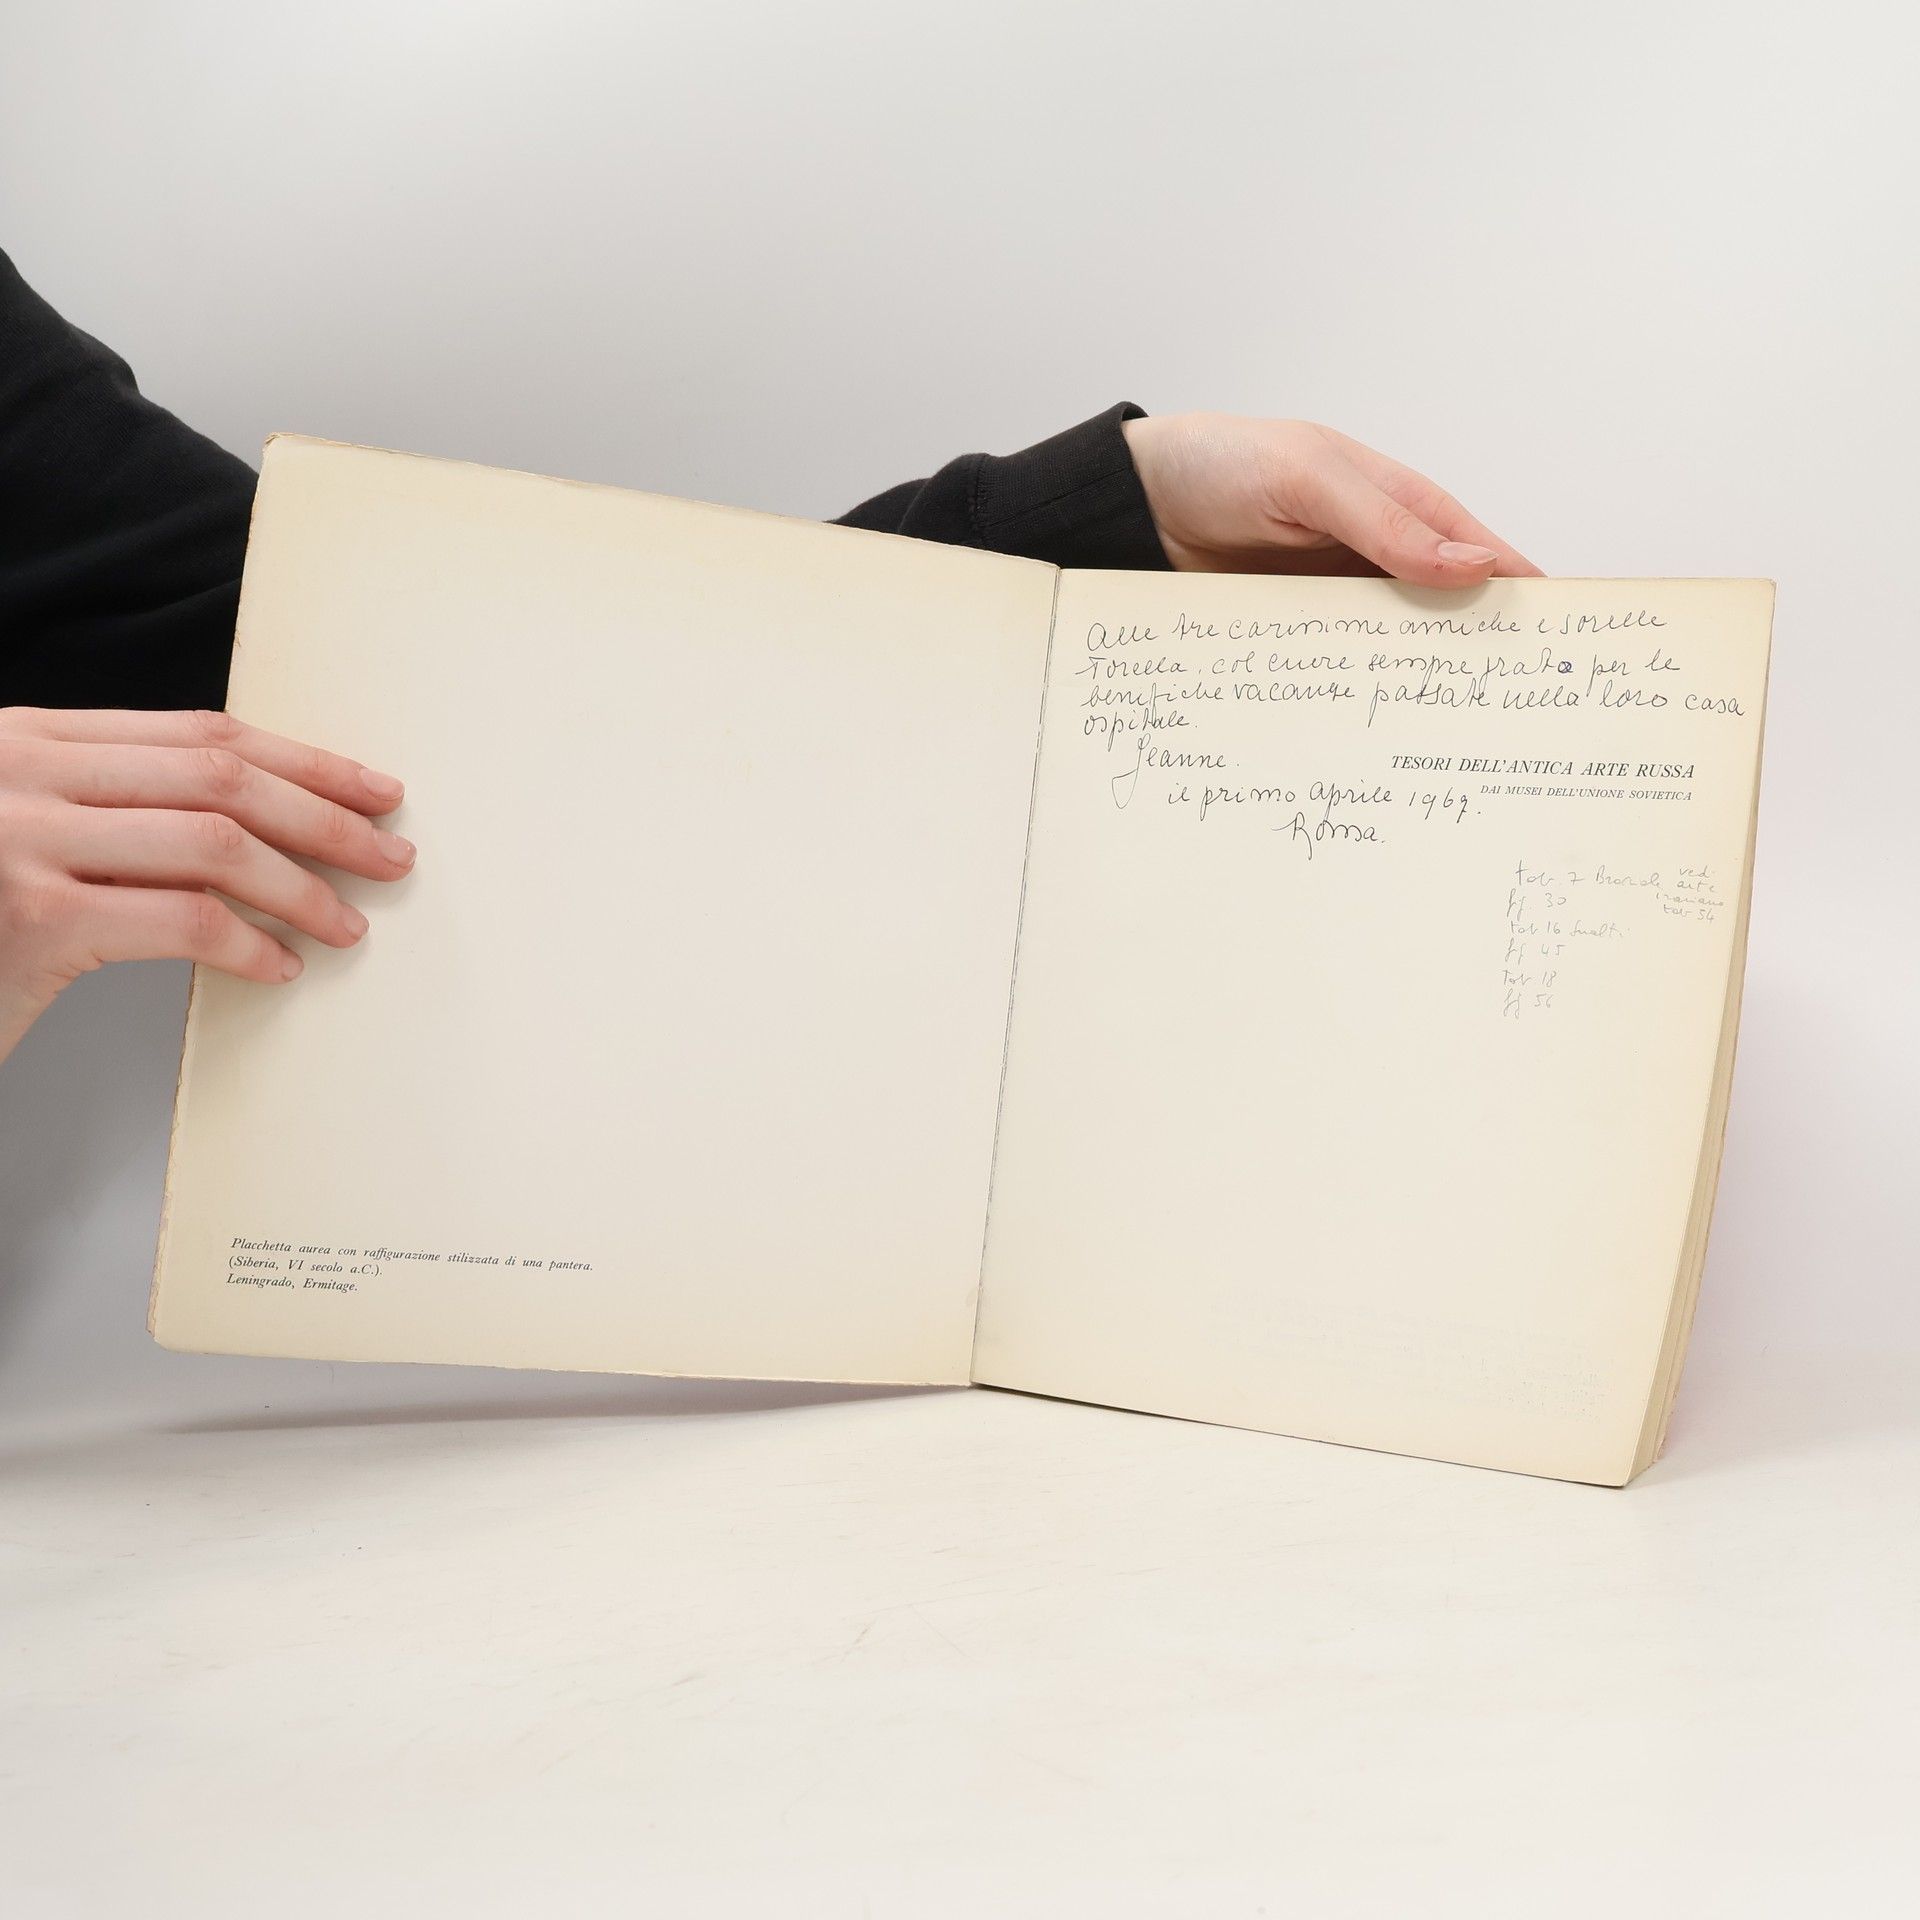 Placchetta aurea con raffigurazione stilizzata di una pantera.
(Siberia, VI secolo a.C.).
Leningrado, Ermitage.
Alle tre carissime amiche e sorelle
Torella, col cuore sempre grato per le
benefiche vacanze passate nella loro casa
ospitale.
Jeanne.
il primo Aprile 1967.
Roma.
TESORI DELL'ANTICA ARTE RUSSA
DAI MUSEI DELL'UNIONE SOVIETICA
tav. 7 vedi
arte
iraniana
tav 54
fig. 30
tav 16 Smalti
fig 45
tav 18
fig 56